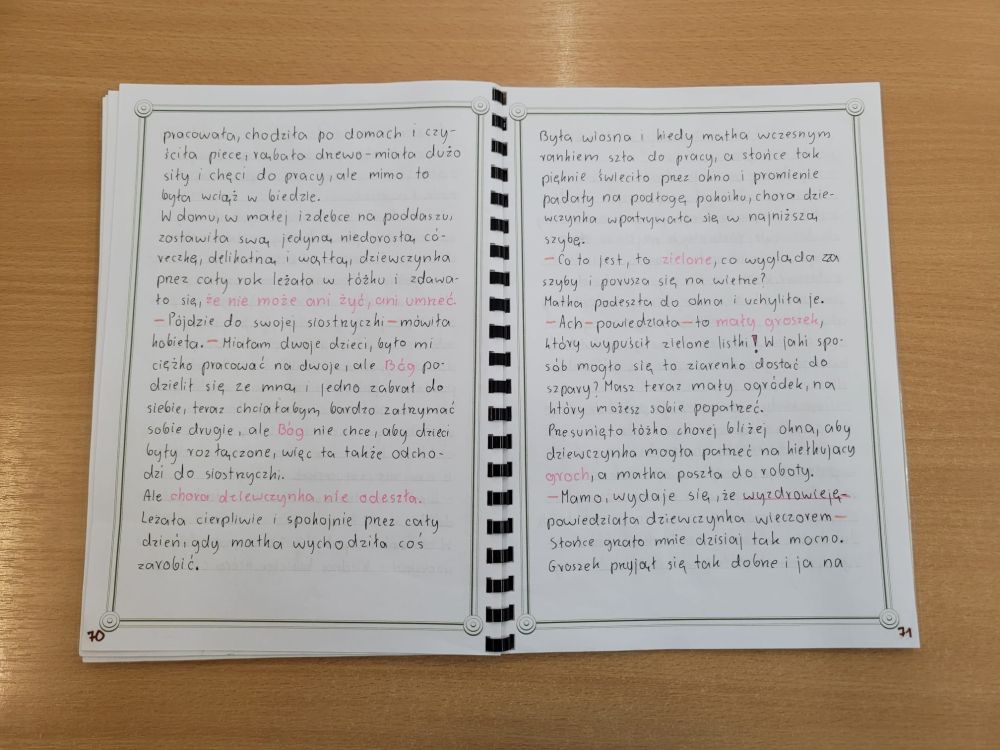 pracowała, chodziła po domach i czy-
ściła piece, rąbała drewo - miała dużo
siły i chęci do pracy, ale mimo to
była wciąż w biedzie.
W domu, w małej izdebce na poddaszu,
zostawiła swą jedyną niedorosłą có-
reczkę, delikatną i wątłą, dziewczynka
przez cały rok leżała w łóżku i zdawa-
ło się, że nie może ani żyć, ani umrzeć.
- Pójdzie do swojej siostrzyczki - mówiła
kobieta. - Miałam dwoje dzieci, było mi
ciężko pracować na dwoje, ale Bóg po-
dzielił się ze mną i jedno zabrał do
siebie, teraz chciałabym bardzo zatrzymać
sobie drugie, ale Bóg nie chce, aby dzieci
były rozłączone, więc ta także odcho-
dzi do siostrzyczki.
Ale chora dziewczynka nie odeszła.
Leżała cierpliwie i spokojnie przez cały
dzień, gdy matka wychodziła coś
zarobić.
70
Była wiosna i kiedy matka wczesnym
rankiem szła do pracy, a słońce tak
pięknie świeciło przez okno i promienie
padały na podłogę pokoiku, chora dzie-
wczynka wpatrywała się w najniższą
szybę.
- Co to jest, to zielone, co wygląda za
szyby i porusza się na wietrze?
Matka podeszła do okna i uchyliła je.
- Ach - powiedziała - to mały groszek,
który wypuścił zielone listki! W jaki spo-
sób mogło się to ziarenko dostać do
szpary? Masz teraz mały ogródek, na
który możesz sobie popatrzeć.
Przesunięto łóżko chorej bliżej okna, aby
dziewczynka mogła patrzeć na kiełkujący
groch, a matka poszła do roboty.
- Mamo, wydaje się, że wyzdrowieję -
powiedziała dziewczynka wieczorem -
Słońce grzało mnie dzisiaj tak mocno.
Groszek przyjął się tak dobrze i ja na
71